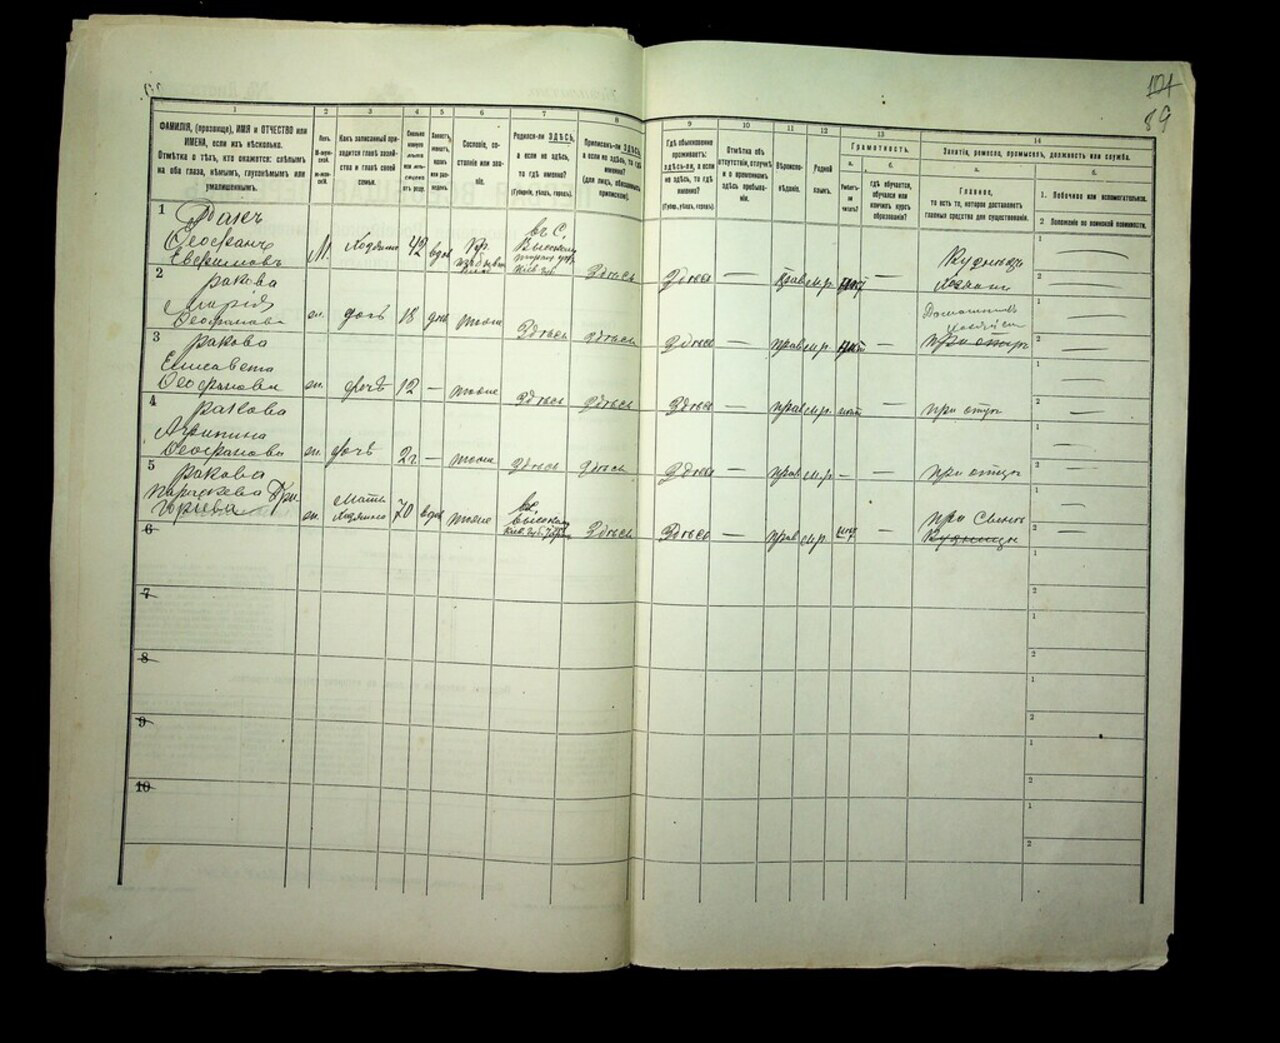 101
89
1
2
3
4
5
6
7
8
9
10
11
12
13
14
ФАМИЛІЯ, (прозвище), ИМЯ и ОТЧЕСТВО или
ИМЕНА, если ихъ нѣсколько.
Отмѣтка о тѣхъ, кто окажется: слѣпымъ
на оба глаза, нѣмымъ, глухонѣмымъ или
умалишеннымъ.
Полъ.
М-муж-
ской.
Ж-жен-
скій.
Какъ записанный при-
ходится главѣ хозяй-
ства и главѣ своей
семьи.
Сколько
Сословіе, со-
стояніе или зва-
ніе.
Родился-ли ЗДѢСЬ,
а если не здѣсь,
то гдѣ именно?
(Губернія, уѣздъ, городъ).
Приписанъ-ли ЗДѢСЬ,
а если не здѣсь, то гдѣ
именно?
(для лицъ, обязанныхъ
припискою).
Гдѣ обыкновенно
проживаетъ:
здѣсь-ли, а если
не здѣсь, то гдѣ
именно?
(Губерн., уѣздъ, городъ).
Отмѣтка объ
отсутствіи, отлучкѣ
и о временномъ
здѣсь пребыва-
ніи.
Вѣроиспо-
вѣданіе.
Родной
языкъ.
Грамотность.
а.
б.
Умѣетъ-
ли
читать?
гдѣ обучается,
обучался или
кончилъ курсъ
образованія?
Занятіе, ремесло, промыселъ, должность или служба.
а.
б.
Главное,
то есть то, которое доставляетъ
главныя средства для существованія.
1. Побочное или вспомогательное.
2. Положеніе по воинской повинности.
1
Ракъ
Ѳеофанъ
Евфимовъ
М.
Хозяинъ
42
вдов
Кр.
въ С.
Здѣсь
Здѣсь
—
Прав
м.р.
—
Хозяинъ
2
ракова
Марія
Ѳеофанова
ж.
дочь
18
дѣв
тоже
Здѣсь
Здѣсь
Здѣсь
—
прав
м.р.
нѣт
—
при отцѣ
3
ракова
Елисавета
Ѳеофанова
ж.
дочь
12
—
тоже
Здѣсь
Здѣсь
Здѣсь
—
прав
м.р.
нѣт
—
при отцѣ
4
ракова
Агрипина
Ѳеофанова
ж.
дочь
2г
—
тоже
Здѣсь
Здѣсь
Здѣсь
—
прав
м.р.
—
—
при отцѣ
5
ракова
Параскева Гри-
горьева
ж.
Мать
Хозяина
70
вдов
тоже
Здѣсь
Здѣсь
—
прав
м.р.
нѣт
—
при Сынѣ
6
7
8
9
10